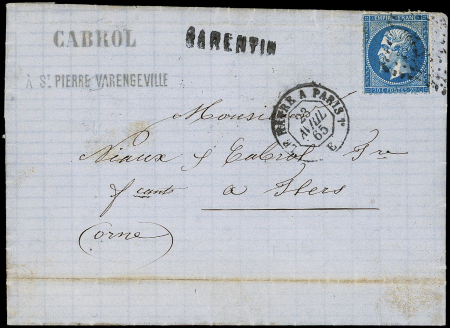 CABROL
À St. PIERRE VARENGEVILLE
BARENTIN
EMPIRE FRANC
20 C POSTES 20 C
LE HAVRE A PARIS 1°
23
AVRIL
65
E
Monsieur
Viaux & Cabrol Fre
fcants
a Flers
(Orne)